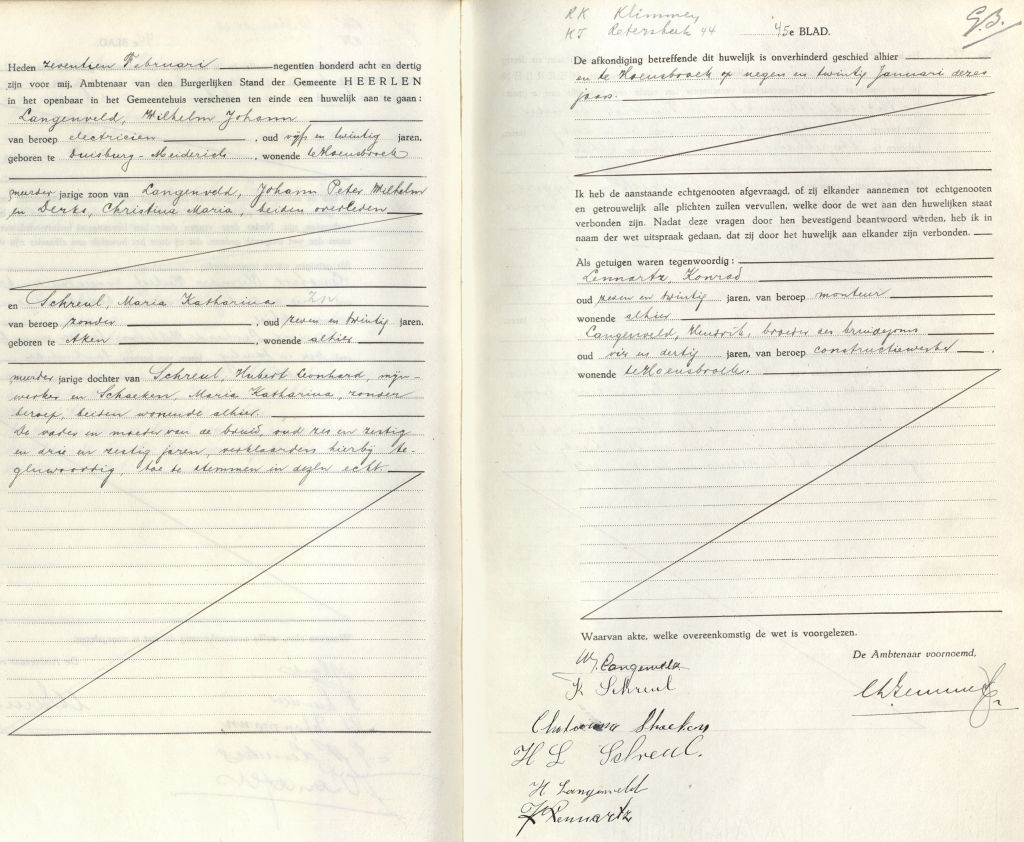 Heden zeventien Februari negentien honderd acht en dertig
zijn voor mij, Ambtenaar van den Burgerlijken Stand der Gemeente HEERLEN
in het openbaar in het Gemeentehuis verschenen ten einde een huwelijk aan te gaan:
Langenveld, Wilhelm Johann
van beroep electricien, oud vijf en twintig jaren,
geboren te Duisburg-Meiderich, wonende te Hoensbroek
meerder jarige zoon van Langenveld, Johann Peter Wilhelm
en Derks, Christina Maria, beiden overleden
en Schreul, Maria Katharina
van beroep zonder, oud zeven en twintig jaren,
geboren te Aken, wonende alhier
meerder jarige dochter van Schreul, Hubert Leonhard, mijn-
werker en Schaeken, Maria Katharina, zonder
beroep, beiden wonende alhier.
De vader en moeder van de bruid, oud zes en zestig
en drie en zestig jaren, verklaarden hierbij te-
genwoordig, toe te stemmen in dezen echt.
RK Klimmen
KJ 44
45e BLAD.
G.B.
De afkondiging betreffende dit huwelijk is onverhinderd geschied alhier
en te Hoensbroek op negen en twintig Januari dezes
jaars.
Ik heb de aanstaande echtgenooten afgevraagd, of zij elkander aannemen tot echtgenooten
en getrouwelijk alle plichten zullen vervullen, welke door de wet aan den huwelijken staat
verbonden zijn. Nadat deze vragen door hen bevestigend beantwoord werden, heb ik in
naam der wet uitspraak gedaan, dat zij door het huwelijk aan elkander zijn verbonden.
Als getuigen waren tegenwoordig:
Lennartz, Konrad
oud zeven en twintig jaren, van beroep monteur
wonende alhier
Langenveld, Hendrik, broeder des bruidegoms
oud vier en dertig jaren, van beroep constructiewerker
wonende te Hoensbroek.
Waarvan akte, welke overeenkomstig de wet is voorgelezen.
De Ambtenaar voornoemd,
W. J. Langenveld
K Schreul
Schaeken
H L Schreul.
H Langenveld
K Lennartz